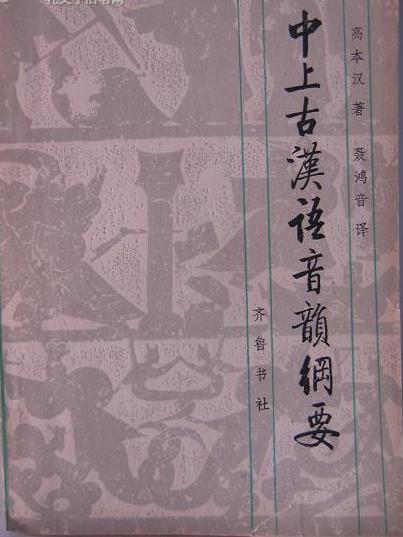 高本汉 著 聂鸿音 译
中上古漢語音韻綱要
齐鲁书社